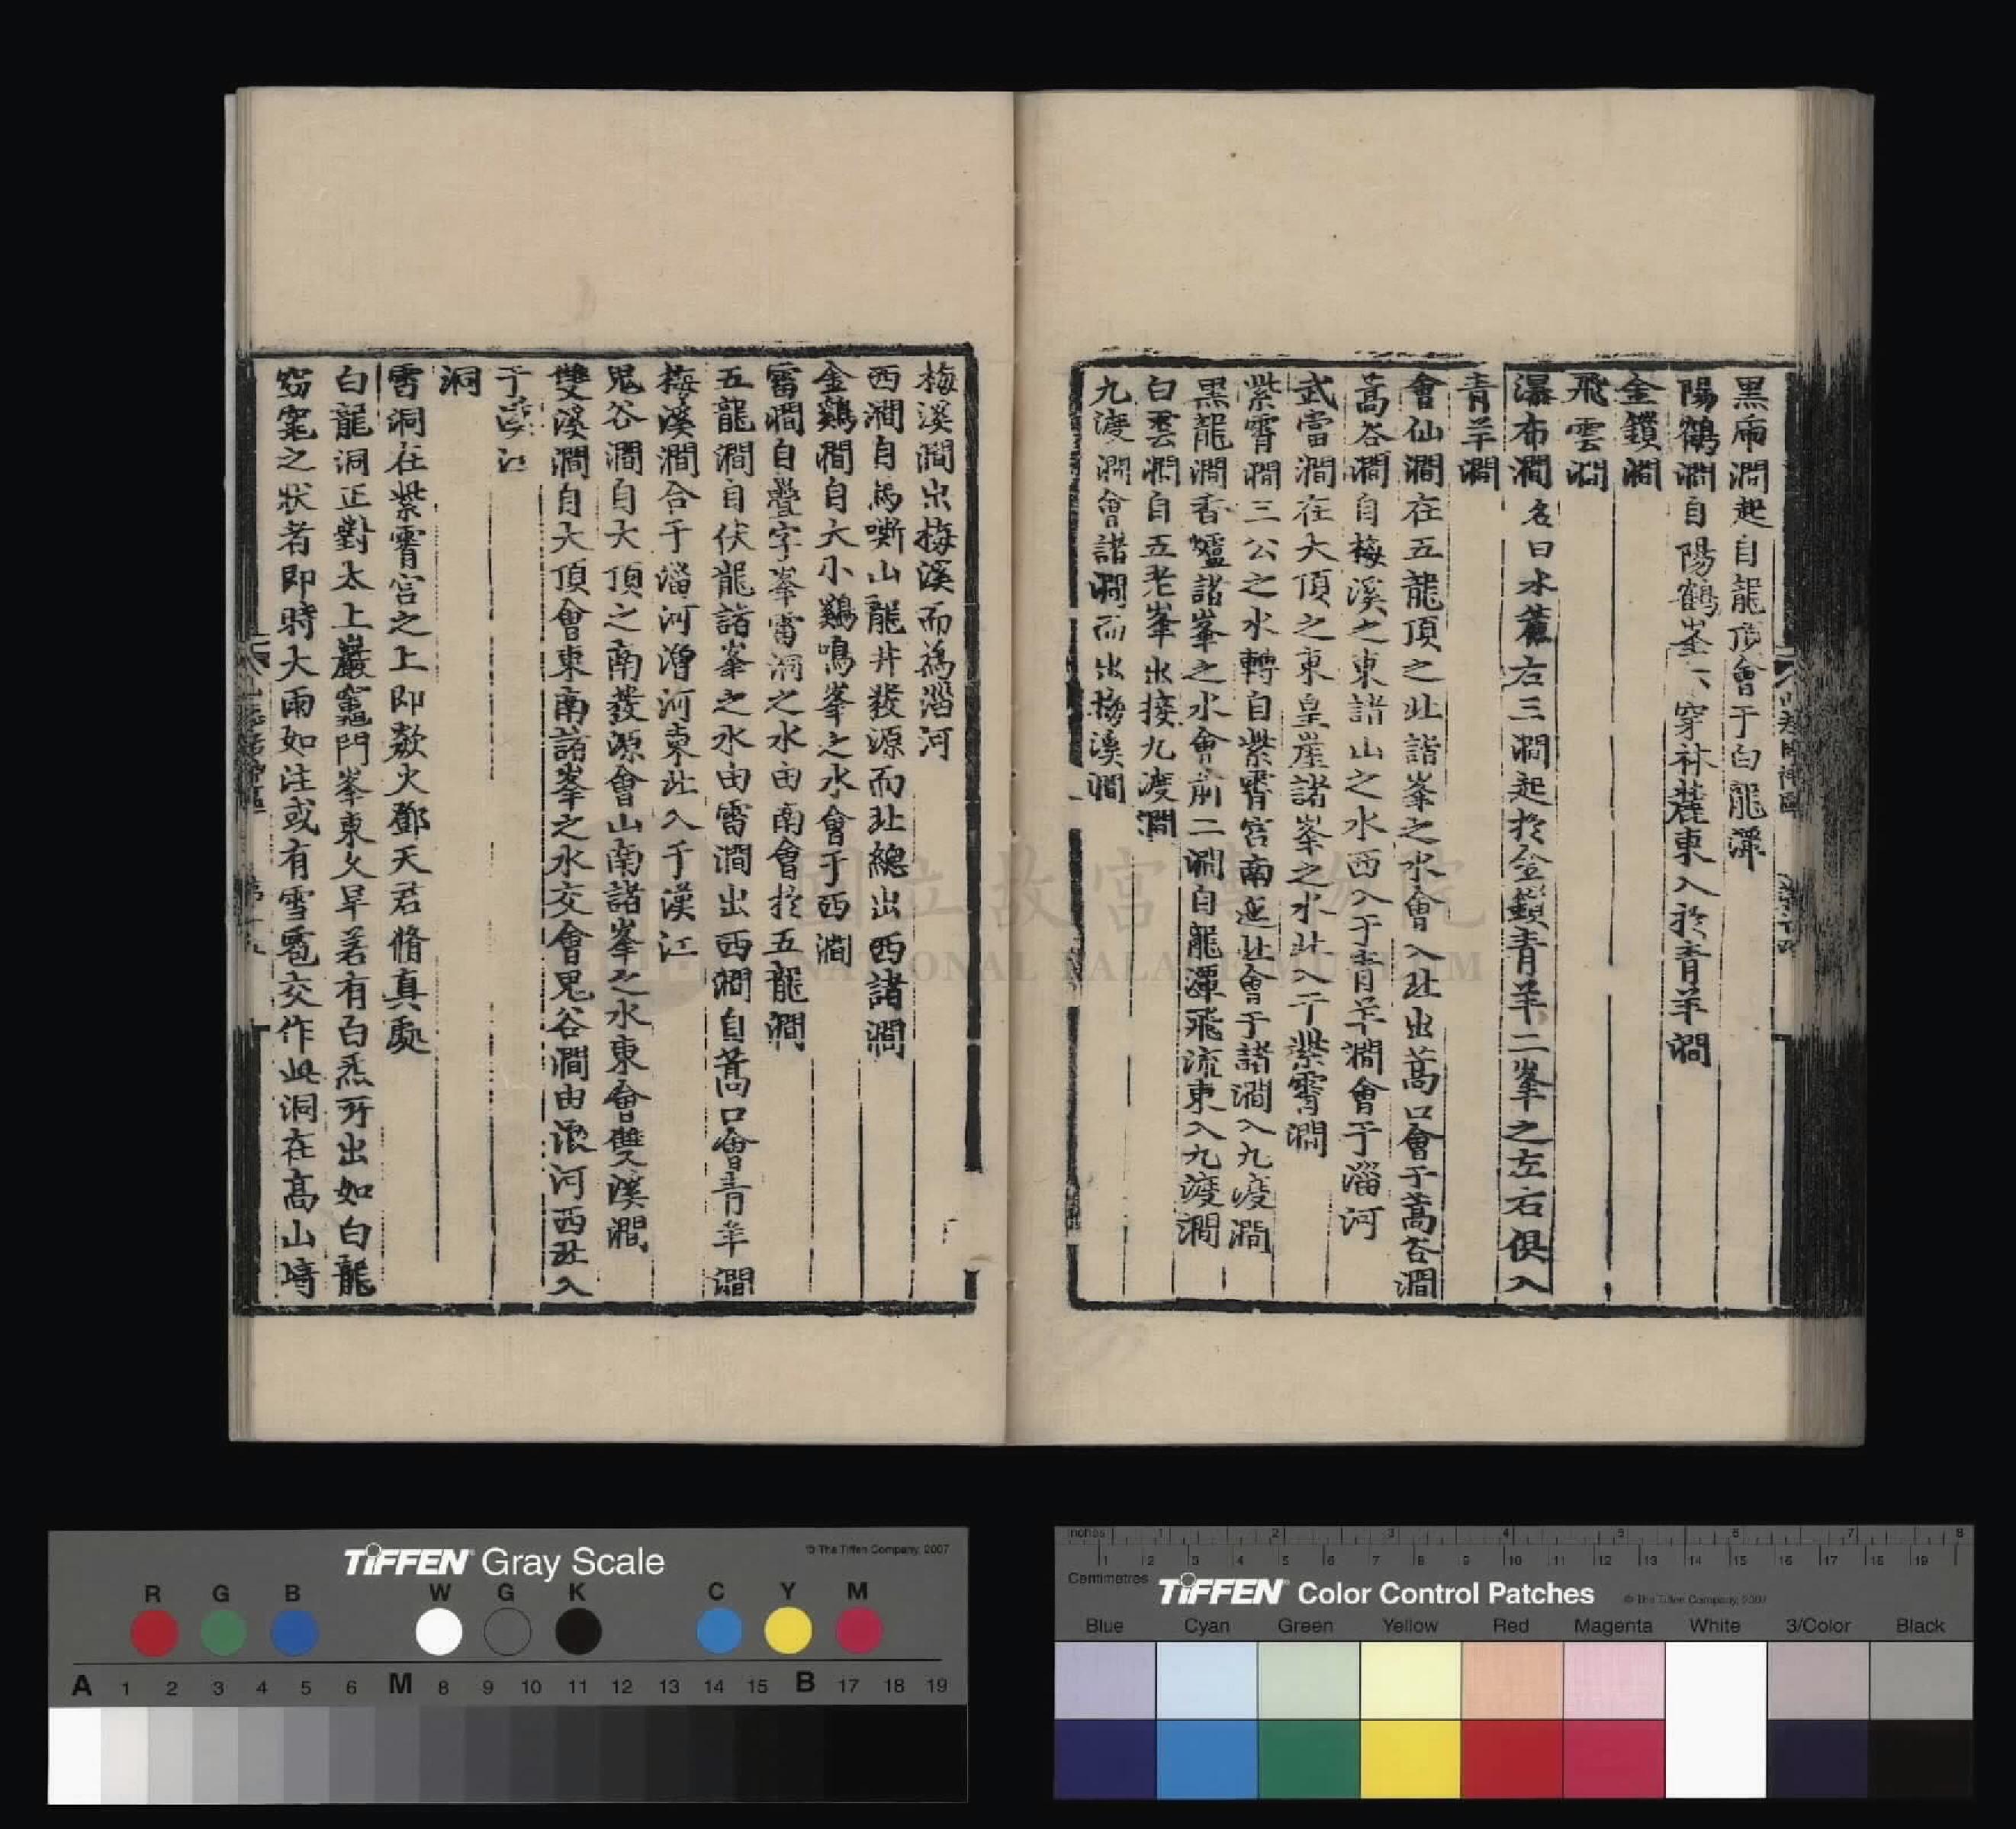 黑雨澗起自龍頂會于白龍潭
陽鶴澗自陽鶴峯穿林麓東入於青羊澗
金鎖澗
飛雲澗
瀑布澗名曰水簾右三澗起於金鎖青羊二峯之左右俱入
青羊澗
會仙澗在五龍頂之北諸峯之水會入北出蒿口會于蒿谷澗
蒿谷澗自梅溪之東諸山之水西入于青羊澗會于淄河
武當澗在大頂之東皇崖諸峯之水北入于紫霄澗
紫霄澗三公之水轉自紫霄宮南迤北會于諸澗入九渡澗
黑龍澗香爐諸峯之水會前二澗自龍潭飛流東入九渡澗
白雲澗自五老峯出接九渡澗
九渡澗會諸澗而出梅溪澗
梅溪澗出梅溪而為淄河
西澗自馬嘶山龍井發源而北總出西諸澗
金鷄澗自大小鷄鳴峯之水會于西澗
雷澗自疊字峯雷洞之水由南會於五龍澗
五龍澗自伏龍諸峯之水由雷澗出西澗自蒿口會青羊澗
梅溪澗合于淄河漕河東北入于漢江
鬼谷澗自大頂之南發源會山南諸峯之水東會雙溪澗
雙溪澗自大頂會東南諸峯之水交會鬼谷澗由浪河西北入
于漢江
洞
雷洞在紫霄宮之上即欻火鄧天君脩真處
白龍洞正對太上巖竈門峯東久旱若有白炁所出如白龍
窈窕之狀者即時大雨如注或有雪雹交作此洞在高山崎
國立故宮博物院
NATIONAL PALACE MUSEUM
TIFFEN Gray Scale
© The Tiffen Company, 2007
R G B W G K C Y M
A 1 2 3 4 5 6 M 8 9 10 11 12 13 14 15 B 17 18 19
Inches 1 2 3 4 5 6 7 8
1 2 3 4 5 6 7 8 9 10 11 12 13 14 15 16 17 18 19
Centimetres
TIFFEN Color Control Patches
© The Tiffen Company, 2007
Blue Cyan Green Yellow Red Magenta White 3/Color Black